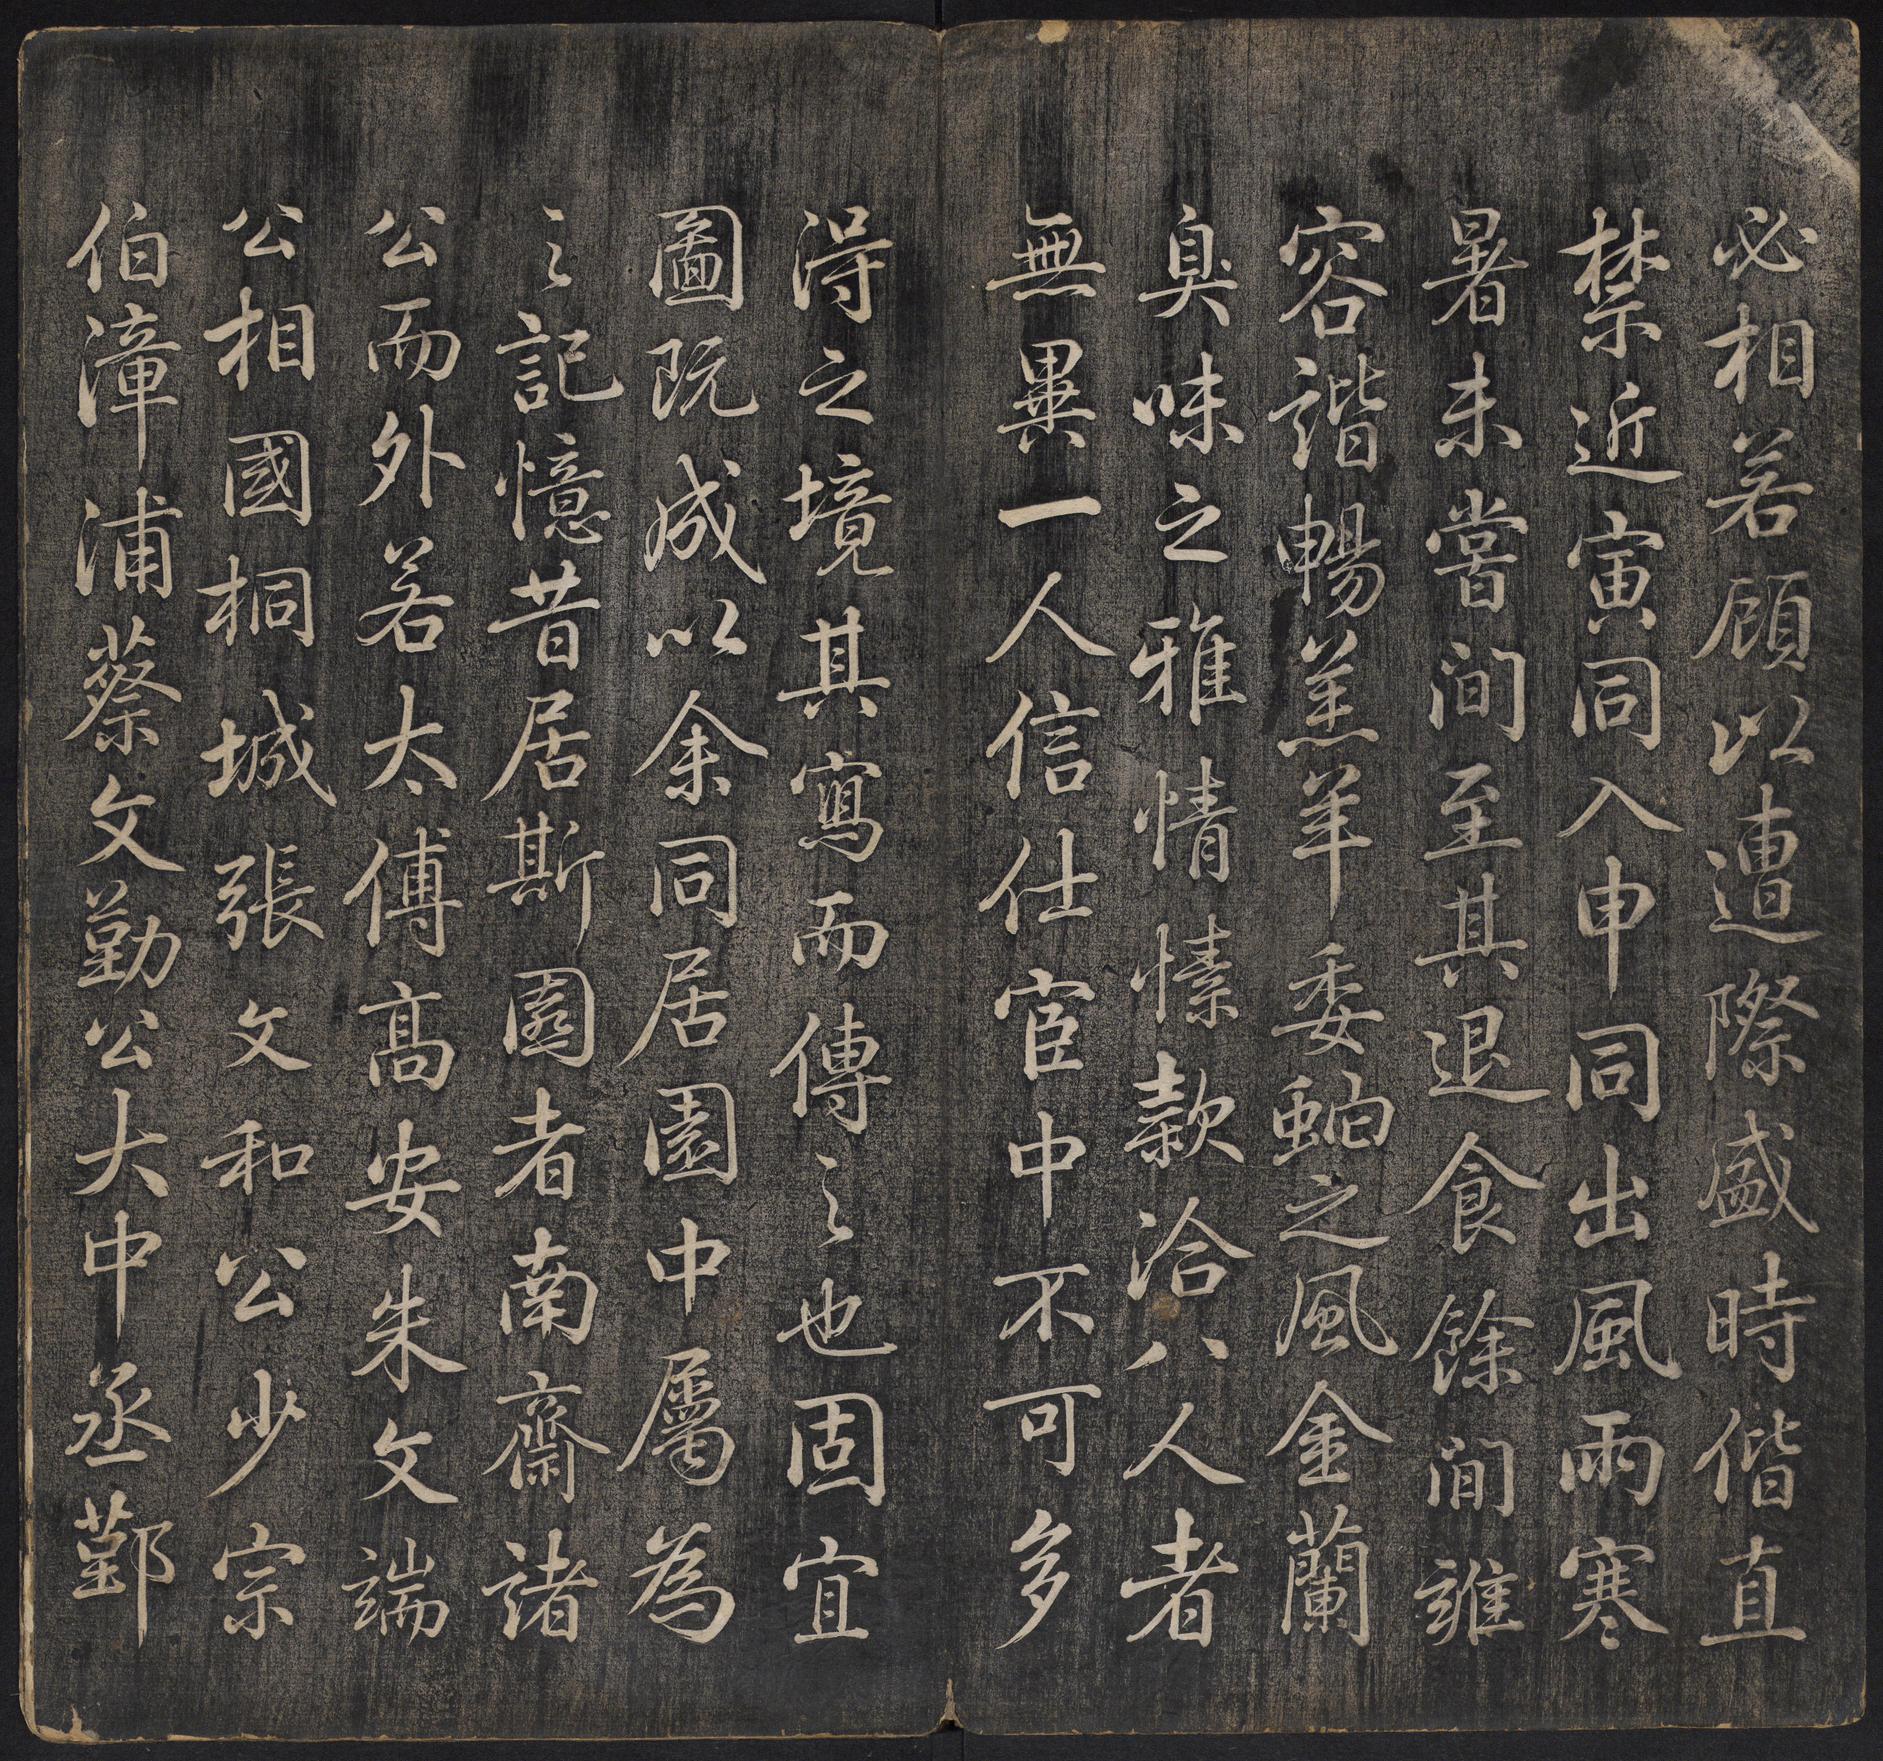 必相若顧以遭際盛時偕直
禁近寅同入申同出風雨寒
暑未嘗間至其退食餘間雍
容諧暢羔羊委蛇之風金蘭
臭味之雅情愫款洽八人者
無異一人信仕宦中不可多
淂之境其寫而傳之也固宜
圖既成以余同居園中屬為
之記憶昔居斯園者南齋諸
公而外若太傅高安朱文端
公相國桐城張文和公少宗
伯漳浦蔡文勤公大中丞鄞